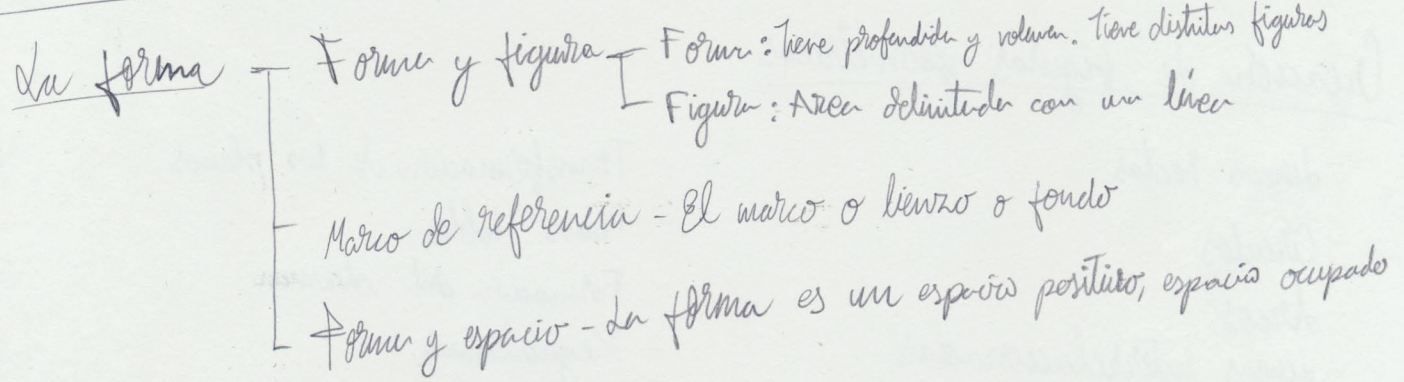 La forma - Forma y figura - Forma: tiene profundida y volumen. Tiene distintas figuras
Figura: Area delimitada con una línea
Marco de referencia - El marco o lienzo o fondo
Forma y espacio - La forma es un espacio positivo, espacio ocupado